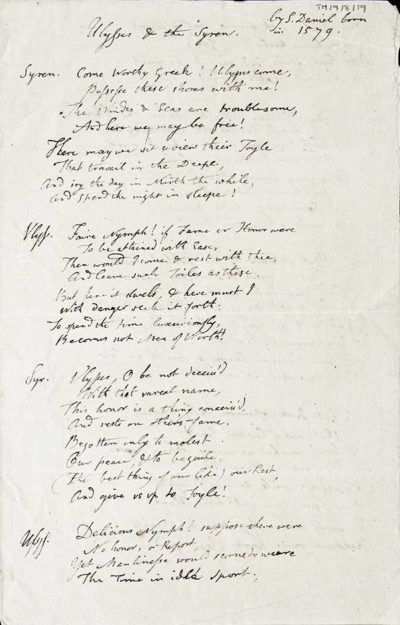 TM/9/8/19
by S. Daniel born
in 1579.
Ulysses & the Syren.
Syren. Come Worthy Greek! Ulysses come,
Possesse these shores with me!
The Windes & Seas are troublesome,
And here we may be free!
Here may we sit & view their Toyle
That travail in the Deepe,
And joy the day in Mirth the while,
And spend the night in sleepe!
Ulyss. Faire Nymph! if Fame or Honor were
To be attained with Ease,
Then would I come & rest with thee,
And leave such Toiles as these.
But here it dwels, & here must I
With danger seek it forth:
To spend the time luxuriously,
Becomes not Men of Worth!
Syr. Ulysses, O be not deceiv'd
With that unreal name,
This honor is a thing conceiv'd,
And rests on others' fame.
Begotten only to molest
Our peace, & to beguile
(The best thing of our life) our Rest,
And give us up to Toyle!
Ulyss. Delicious Nymph! suppose there were
No honor, or Report,
Yet Manlinesse would scorne to weare
The Time in idle sport;